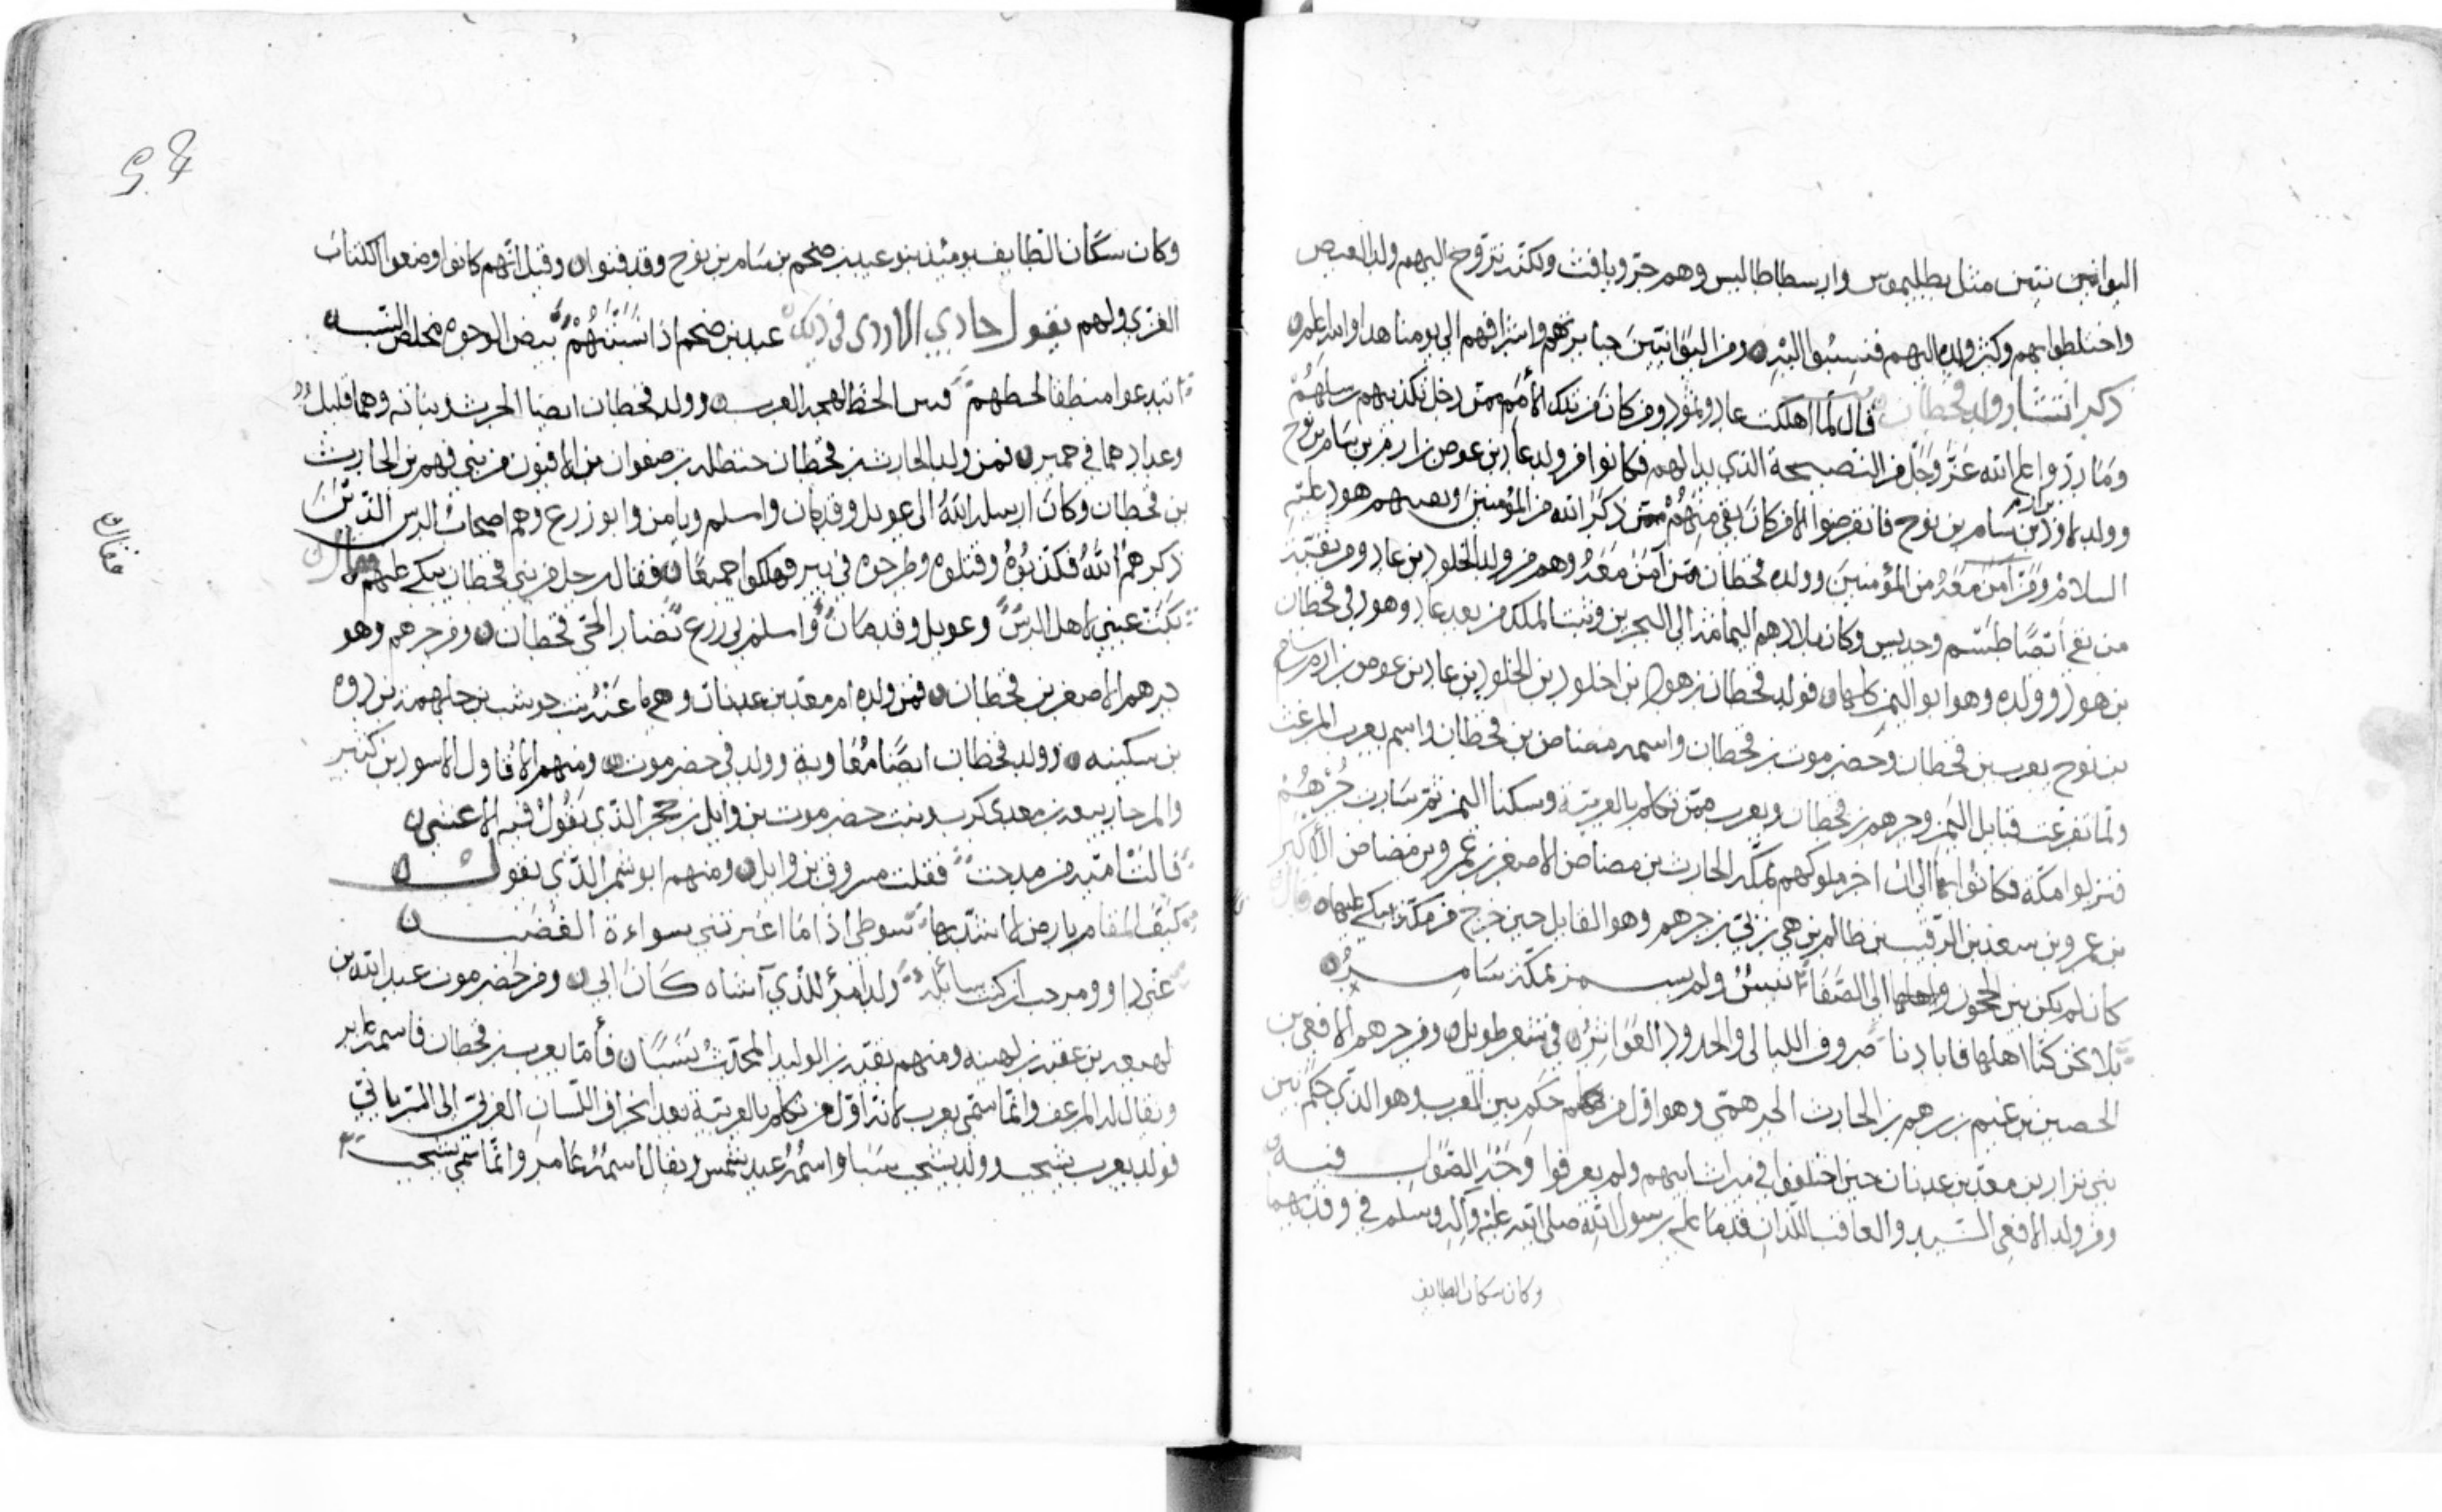 اليوانيين مثل بطليموس وارسطاطاليس وهم جز ويافث ولكنه تزوج اليهم ولد العيص
واختلطوا بهم وكثر ولده اليهم فنسبوا اليه ومن اليوانيين جبابرتهم واشرافهم الى يومنا هذا والله اعلم
ذكر انتشار ولد قحطان قال لما اهلكت عاد وثمود ومن كان من تلك الأمم ممن دخل تكذيبهم رسلهم
وما ردّوا على الله عزّ وجلّ من النصيحة الذي بدا لهم فكانوا من ولد عاد بن عوص بن ارم بن سام بن نوح
وولد لاوذ بن سام بن نوح فانقرضوا الا من كان بقي منهم ممن ذكر الله من المؤمنين هود عليه
السلام ومن آمن معه من المؤمنين وولده قحطان ممن آمن معه وهم من ولد الخلود بن عاد ومن بقية
من بقي ايضًا طسم وجديس وكان بلادهم اليمامة الى البحرين وثبت الملك من بعد عاد وهود في قحطان
بن هود وولده وهو ابو اليمن كلها فولد قحطان بن هود بن اخلود بن الخلود بن عاد بن عوص بن ارم بن سام
بن نوح يعرب بن قحطان وحضرموت بن قحطان واسمه مضاض بن قحطان واسم يعرب المرعف
ولما تفرعت قبايل اليمن وجرهم بن قحطان ويعرب ممن تكلم بالعربية وسكنا اليمن ثم سارت جرهم
فنزلوا مكة فكانوا بها الى ان اخر ملوكهم بمكة الحارث بن مضاض الاصغر بن عمرو بن مضاض الأكبر
بن عمرو بن سعد بن الرقيب بن ظالم بن هي بن بي بن جرهم وهو القايل حين خرج من مكة يبكي عليها قال
كان لم يكن بين الحجون الى الصفا انيسٌ ولم يسمر بمكة سامرُ
بلا نحن كنا اهلها فابادنا صروف الليالي والجدود العواثرُ في شعر طويل ومن جرهم الافعى بن
الحصين بن غنيم بن رهم بن الحارث الجرهمي وهو اول من حكم بين العرب وهو الذي حكم بين
بني نزار بن معد بن عدنان حين اختلفوا في ميراث ابيهم ولم يعرفوا وجه الصواب فيه
ومن ولد الافعى السيد والعاقب اللذان قدما على رسول الله صلى الله عليه وآله وسلم في وفدهما
وكان سكان الطايف
وكان سكان الطايف يومئذ بنو عبد بن ضخم بن سام بن نوح وقد فنوا وقيل انهم كانوا وضعوا الكتاب
العربي ولهم يقول حادي الازدي في ذلك عبد بن ضخم اذا نسبتهم بيض الوجوه مخلص النسب
ابتدعوا منطقا لخطهم فبين الخط لهجة العرب وولد قحطان ايضا الحرث بناته وهما قليل
وعدادهما في حمير فمن ولد الحارث بن قحطان حنظله بن صفوان بن الاقيون من بني فهم بن الحارث
بن قحطان وكان ارسله الله الى عويل وقدمان واسلم ويامن وابو زرع وهم اصحاب الرس الذين
ذكرهم الله فكذبوه وقتلوه وطرحوه في بير فهلكوا جميعًا فقال رجل من بني قحطان يبكي عليهم
فقال
بكت عيني لاهل الرسّ وعويل وقدمان واسلم بي زرع نصار الحي قحطان ومن جرهم وهو
جرهم الاصغر بن قحطان فمن ولده ام معد بن عدنان وهي بنت جوشب بن جلهمة بن دوه
بن سكينه وولد قحطان ايضًا مُعَاوية وولد في حضرموت ومنهم الاقاول الاسود بن كثير
بن معدي كرب بنت حضرموت بن وايل بن حجر الذي يقول فيه الاعشى
قالت امية من مدحت فقلت مسروق بن وايل ومنهم ابو شمر الذي يقول
سوطي اذا ما اعترتني سوأة الغضب
ومرحب اركب ولد امرؤ للذي آنساه كان ابي ومن حضرموت عبد الله بن
لهيعه بن عقبه بن لهيعه ومنهم بقيه بن الوليد المحدّث فأما يعرب بن قحطان فاسمه
ويقال له المرعف وانما سمّي يعرب لانه اول من تكلم بالعربية بعد انحراف اللسان العربي الى السرياني
فولد يعرب يشجب وولد يشجب سبا واسمه عبد شمس ويقال اسمه عامر وانما سمي يشجب